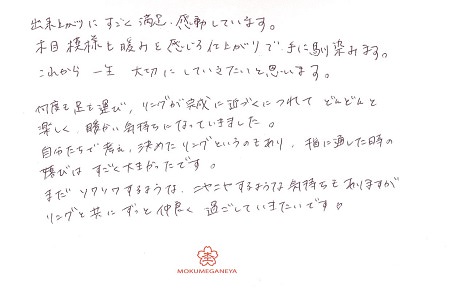 出来上がりにすごく満足、感動しています。
木目模様も暖かみを感じる仕上がりで手に馴染みます。
これから一生 大切にしていきたいと思います。
何度も足を運び、リングが完成に近づくにつれて どんどんと
楽しく、暖かい気持ちになっていきました。
自分たちで考え、決めたリングというのもあり、指に通した時の
喜びは すごく大きかったです。
まだ ソワソワするような、ニヤニヤするような気持ちもありますが
リングと共に ずっと仲良く 過ごしていきたいです♡
MOKUMEGANEYA